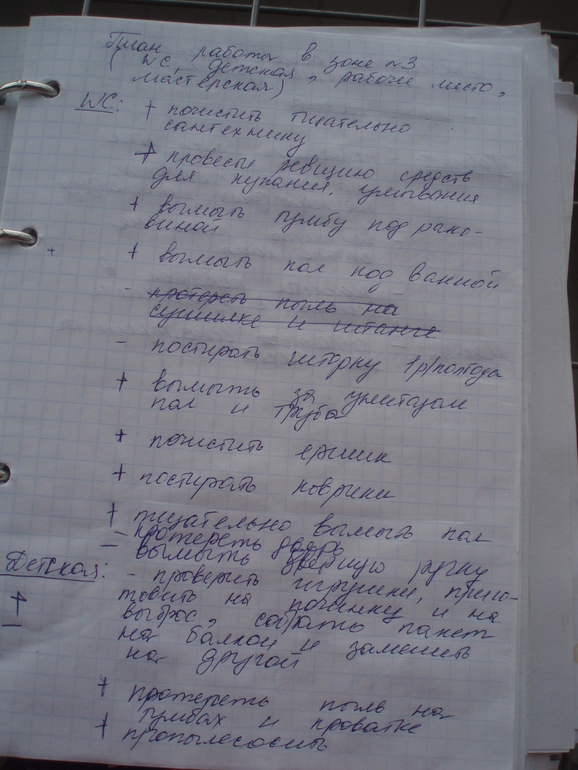 План работы в зоне №3
(WC, детская, рабочее место,
мастерская)
WC: + почистить тщательно
сантехнику
+ провести ревизию средств
для купания, умывания
+ вымыть тумбу под рако-
виной
+ вымыть пол под ванной
- протереть пыль на
сушилке и штанге
- постирать шторку 1р/полгода
+ вымыть за унитазом
пол и трубы
+ почистить ершик
+ постирать коврики
+ тщательно вымыть пол
- протереть дверь
вымыть дверную ручку
Детская: - проверить игрушки, приго-
+ товить на починку и на
выброс, собрать пакет
на балкон и заменить
на другой
+ протереть пыль на
тумбах и кроватке
+ пропылесосить